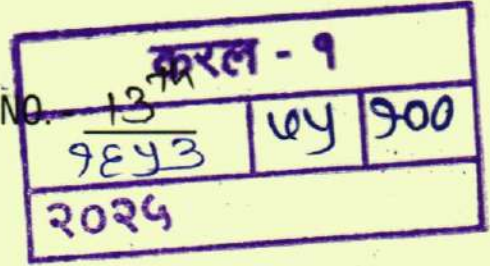 करल - १
NO. - 13TH
१६५३ ७५ १००
२०२५